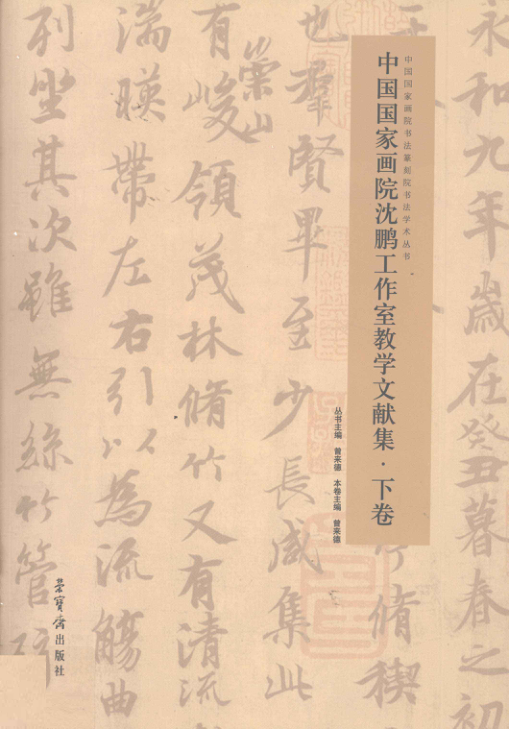 永和九年歲在癸丑暮春之初
脩禊
中国国家画院书法篆刻院书法学术丛书
中国国家画院沈鹏工作室教学文献集·下卷
丛书主编 曾来德 本卷主编 曾来德
也羣賢畢至少長咸集此
崇山
有峻領茂林脩竹又有清流
湍暎帶左右引以為流觴曲
列坐其次雖無絲竹管
荣宝斋出版社